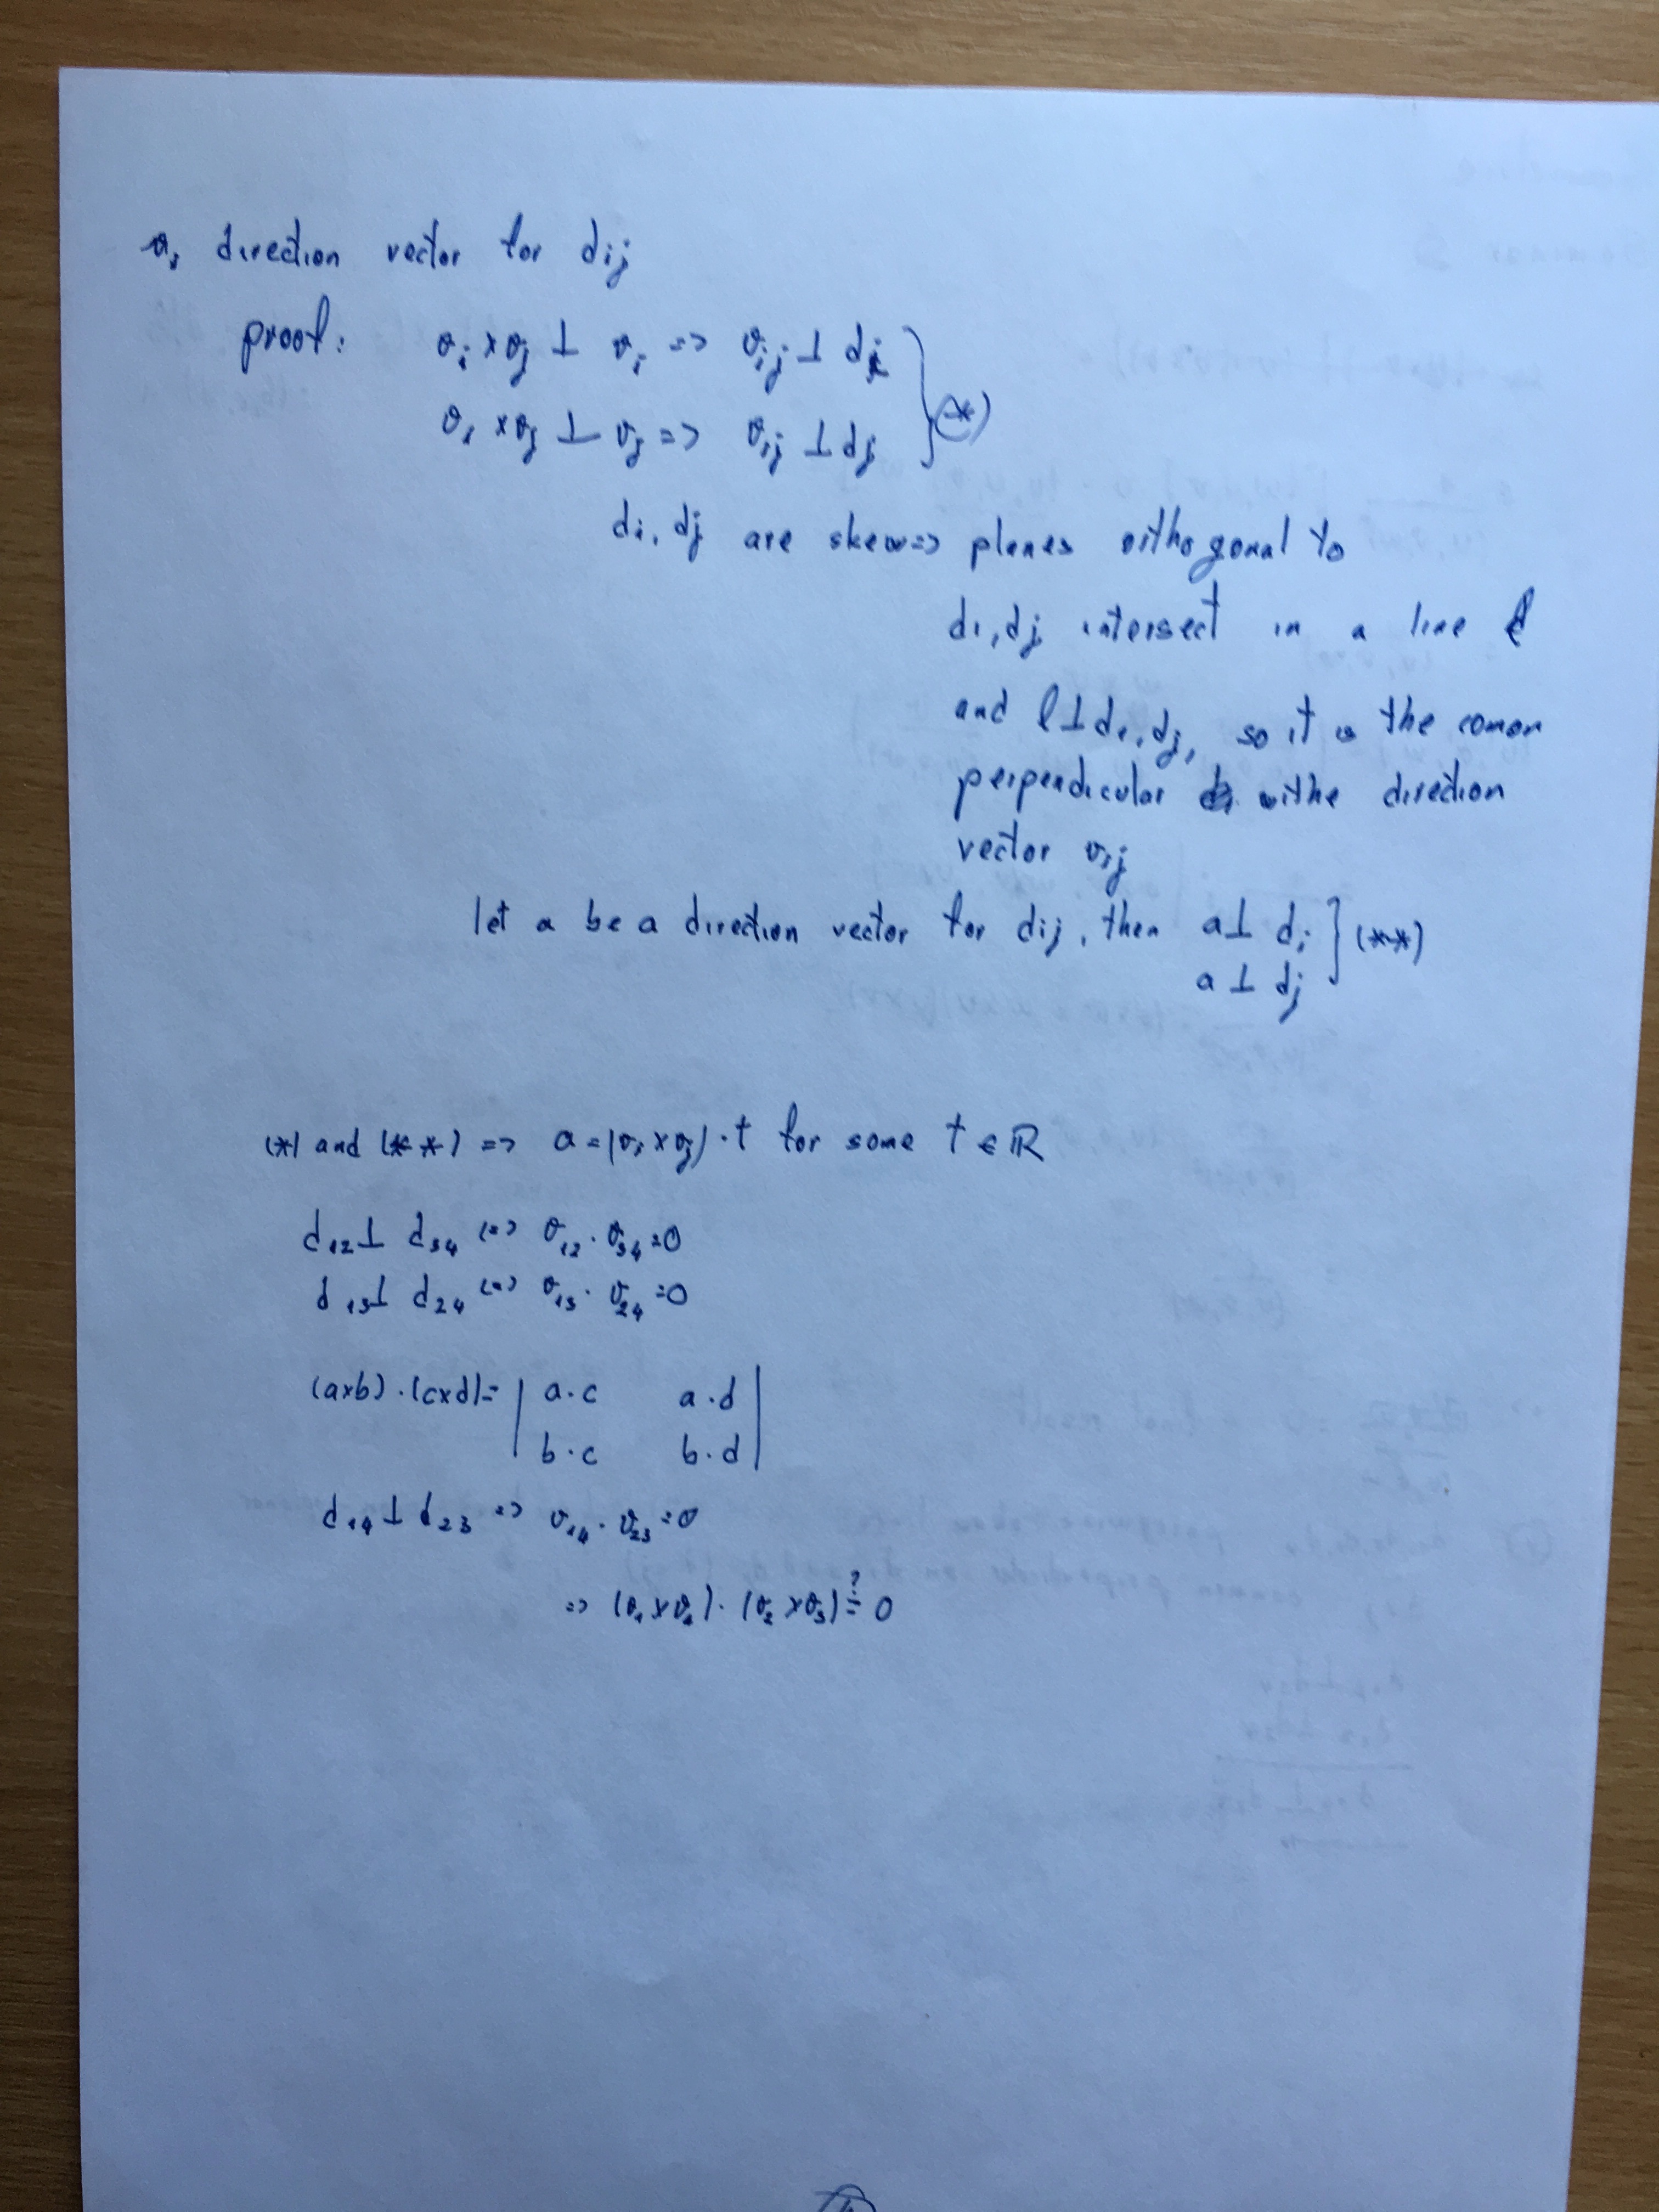 direction vector for dij
proof: vi x vj ⊥ vi => vij ⊥ di
vi x vj ⊥ vj => vij ⊥ dj } (*)
di, dj are skew => planes orthogonal to
di, dj intersect in a line l
and l ⊥ di, dj, so it is the comon
perpendicular withe direction
vector vij
let a be a direction vector for dij, then a ⊥ di } (**)
a ⊥ dj
(*) and (**) => a = (vi x vj) · t for some t ∈ ℝ
d12 ⊥ d34 <=> v12 · v34 = 0
d13 ⊥ d24 <=> v13 · v24 = 0
(axb) · (cxd) = | a·c a·d |
| b·c b·d |
d14 ⊥ d23 => v14 · v23 = 0
=> (v1 x v4) · (v2 x v3) ?= 0